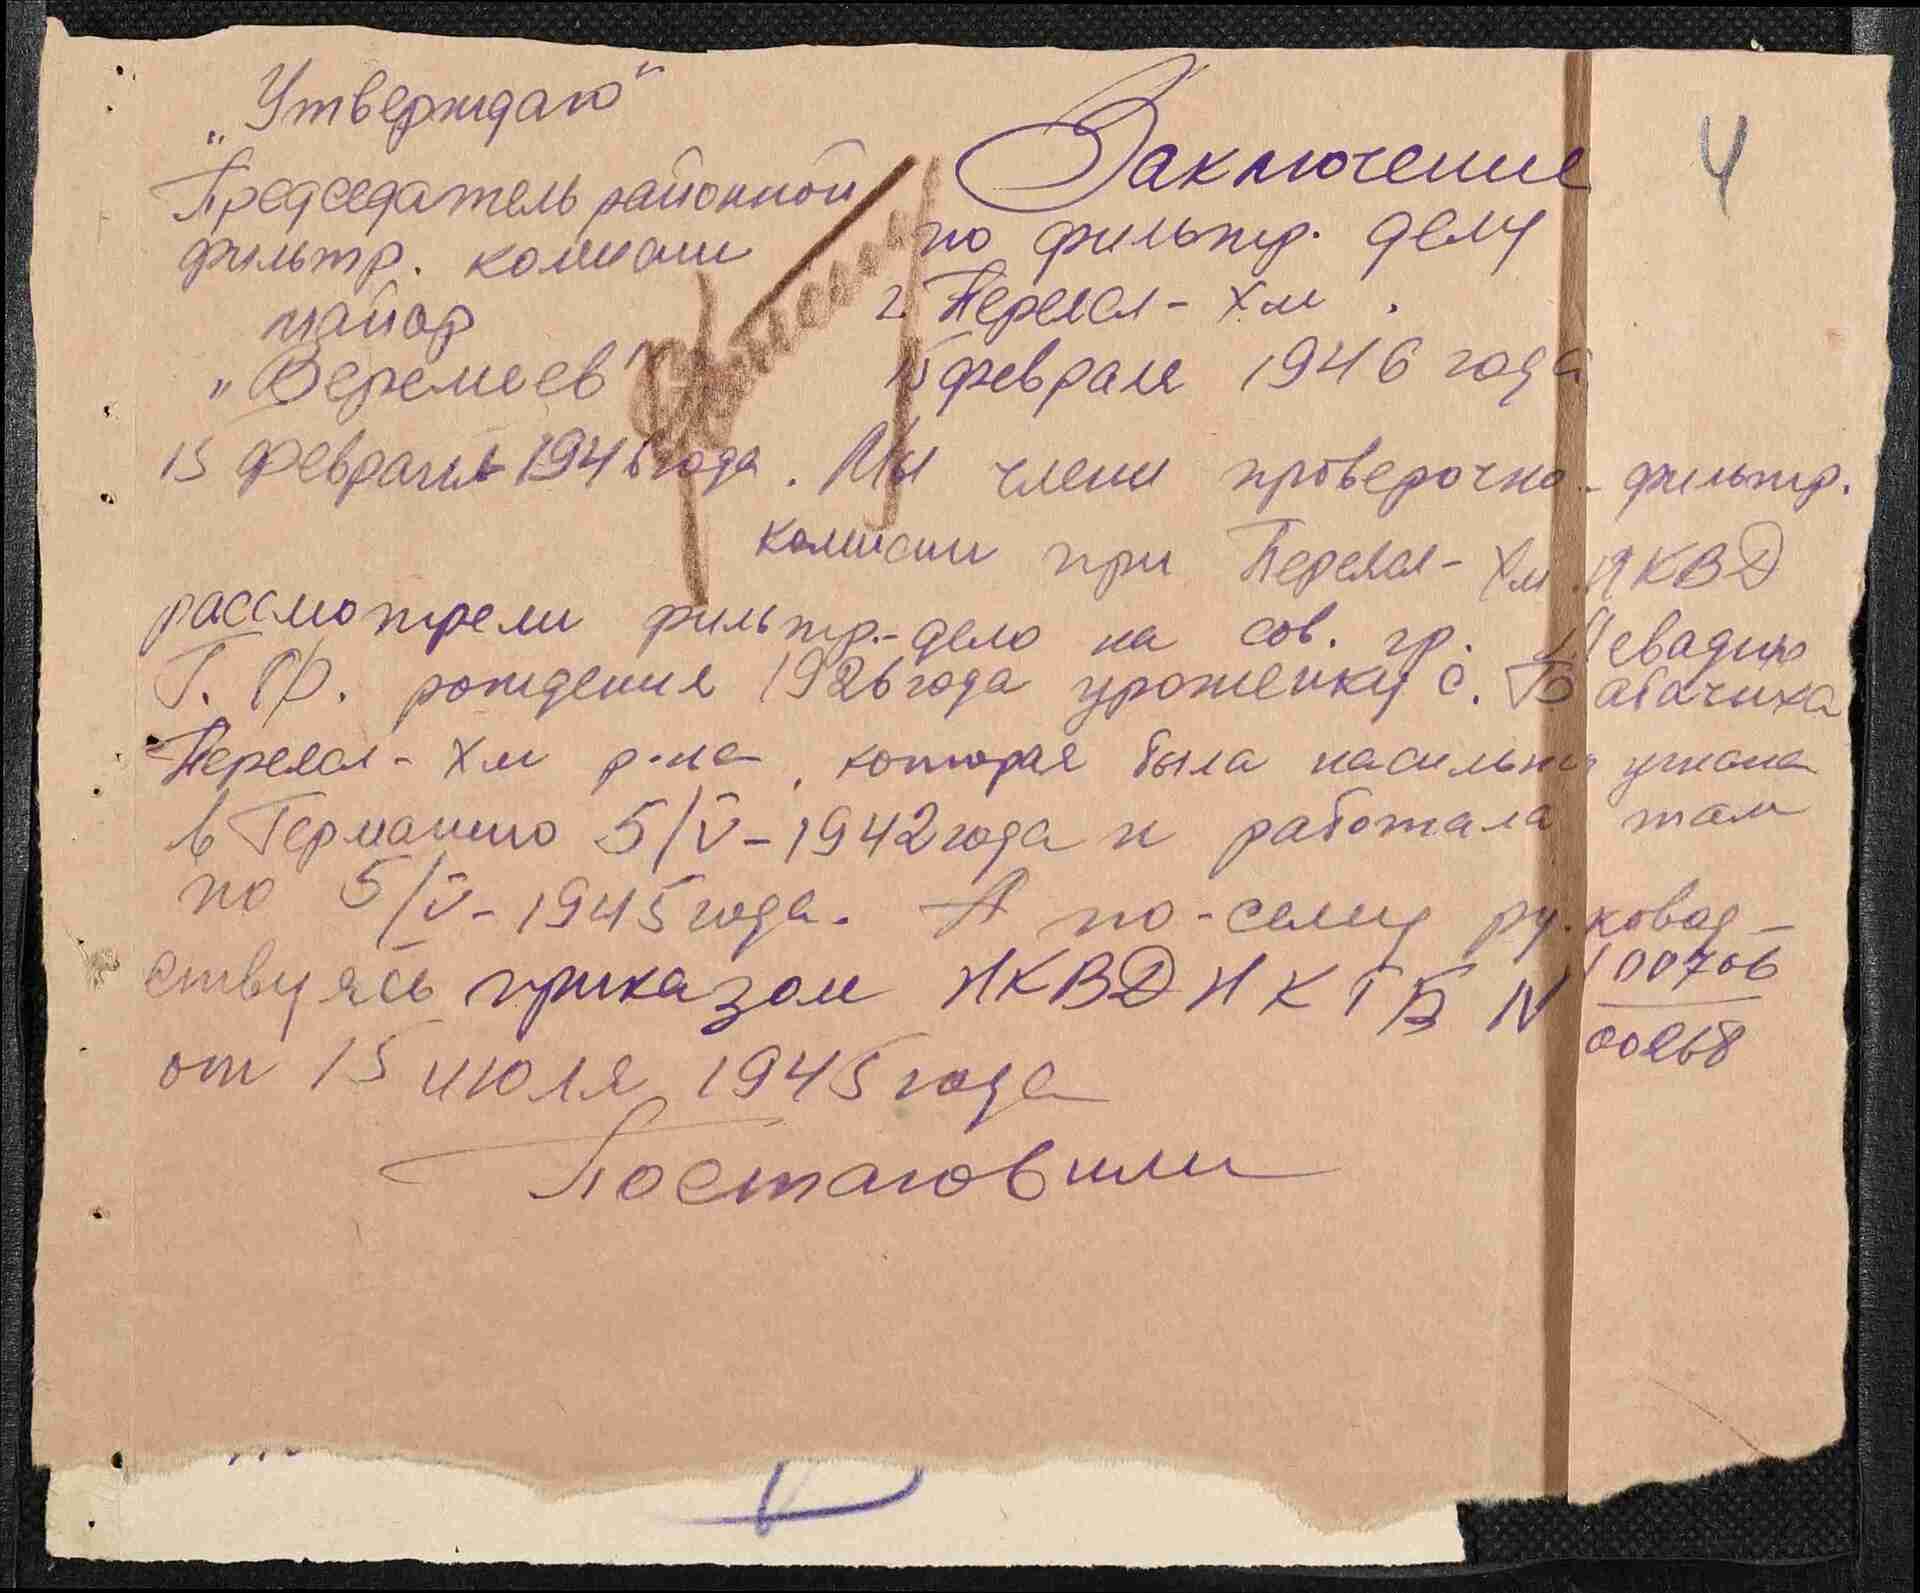 „Утверждаю“
Председатель районной
фильтр. комисии
майор
„Веремеев“
15 февраля 1946 года.
Заключение
по фильтр. делу
г. Переясл-Хм.
15 февраля 1946 года
4
Мы члени проверочно-фильтр.
комисии при Переясл-Хм. НКВД
рассмотрели фильтр.-дело на сов. гр. Левадню
Г. Ф. рождения 1926 года уроженку с. Бабачиха
Переясл-Хм р-на, которая была насильно угнана
в Германию 5/V-1942 года и работала там
по 5/V-1945 года. А по-сему руковод-
ствуясь приказом НКВД НКГБ N 00706
00268
от 15 июля 1945 года
Постановили